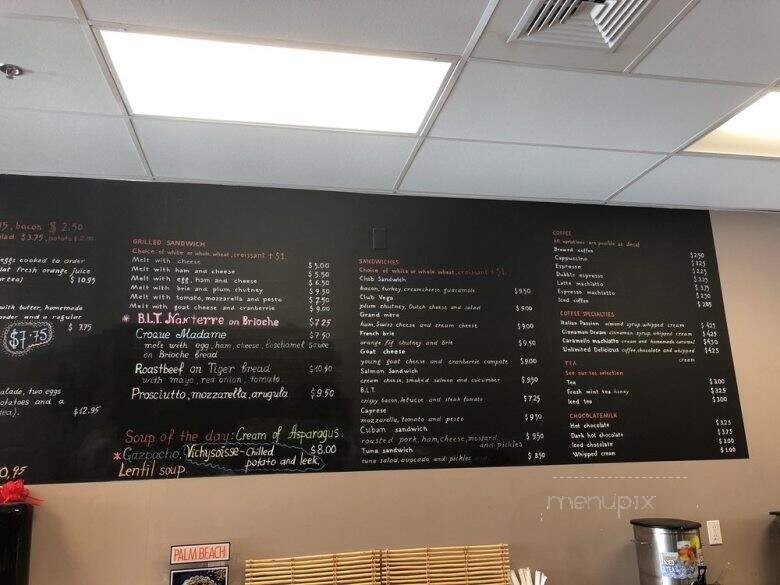 bacon $ 2.50
lad $3.75, potato $ 2.00
eggs cooked to order
fresh orange juice
$ 10.95
with butter, homemade
and a regular
$ 7.75
$7.75
alade, two eggs
otatoes and a
tea). $12.95
0,95
GRILLED SANDWICH
Choice of white or whole wheat, croissant + $1
Melt with cheese $5.00
Melt with ham and cheese $5.50
Melt with egg, ham and cheese $6.50
Melt with brie and plum chutney $9.50
Melt with tomato, mozzarella and pesto $7.50
Melt with goat cheese and cranberrie $9.00
* B.L.T. Nanterre on Brioche $7.25
Croque Madame $7.50
melt with egg, ham, cheese, bechamel sauce
on Brioche Bread
Roastbeef on Tiger Bread $10.50
with mayo, red onion, tomato
Prosciutto, mozzarella, arugula $9.50
Soup of the day: Cream of Asparagus.
* Gazpacho, Vichysoisse - Chilled $8.00
potato and leek
Lentil soup
SANDWICHES
Choice of white or whole wheat, croissant + $1
Club Sandwich
bacon, turkey, creamcheese, guacamole $9.50
Club Vega
plum chutney, Dutch cheese and salad $9.00
Grand mère
ham, Swiss cheese and cream cheese $9.00
French brie
orange fig chutney and brie $9.50
Goat cheese
young goat cheese and cranberrie compote $9.00
Salmon Sandwich
cream cheese, smoked salmon and cucumber $9.50
B.L.T.
crispy bacon, lettuce and steak tomato $7.25
Caprese
mozzarella, tomato and pesto $9.50
Cuban sandwich
roasted pork, ham, cheese, mustard $9.50
and pickles
Tuna sandwich
tuna salad, avocado and pickles $8.50
COFFEE
All variations are posible as decaf
Brewed coffee $2.50
Cappuccino $3.25
Espresso $2.25
Dubble espresso $3.25
Latte machiatto $3.75
Espresso machiatto $2.50
Iced coffee $2.85
COFFEE SPECIALTIES
Italian Passion almond syrup, whipped cream $4.25
Cinnaman Dream cinnaman syrup, whipped cream $4.25
Caramello machiatto cream and homemade caramel $4.50
Unlimited Delicious coffee, chocolate and whipped $4.25
cream
TEA
See our tea selection
Tea $3.00
Fresh mint tea honey $3.25
Iced tea $3.00
CHOCOLATEMILK
Hot chocolate $3.25
Dark hot chocolate $3.75
Iced chocolate $3.00
Whipped cream $1.00
menupix
PALM BEACH
ICED
TEA